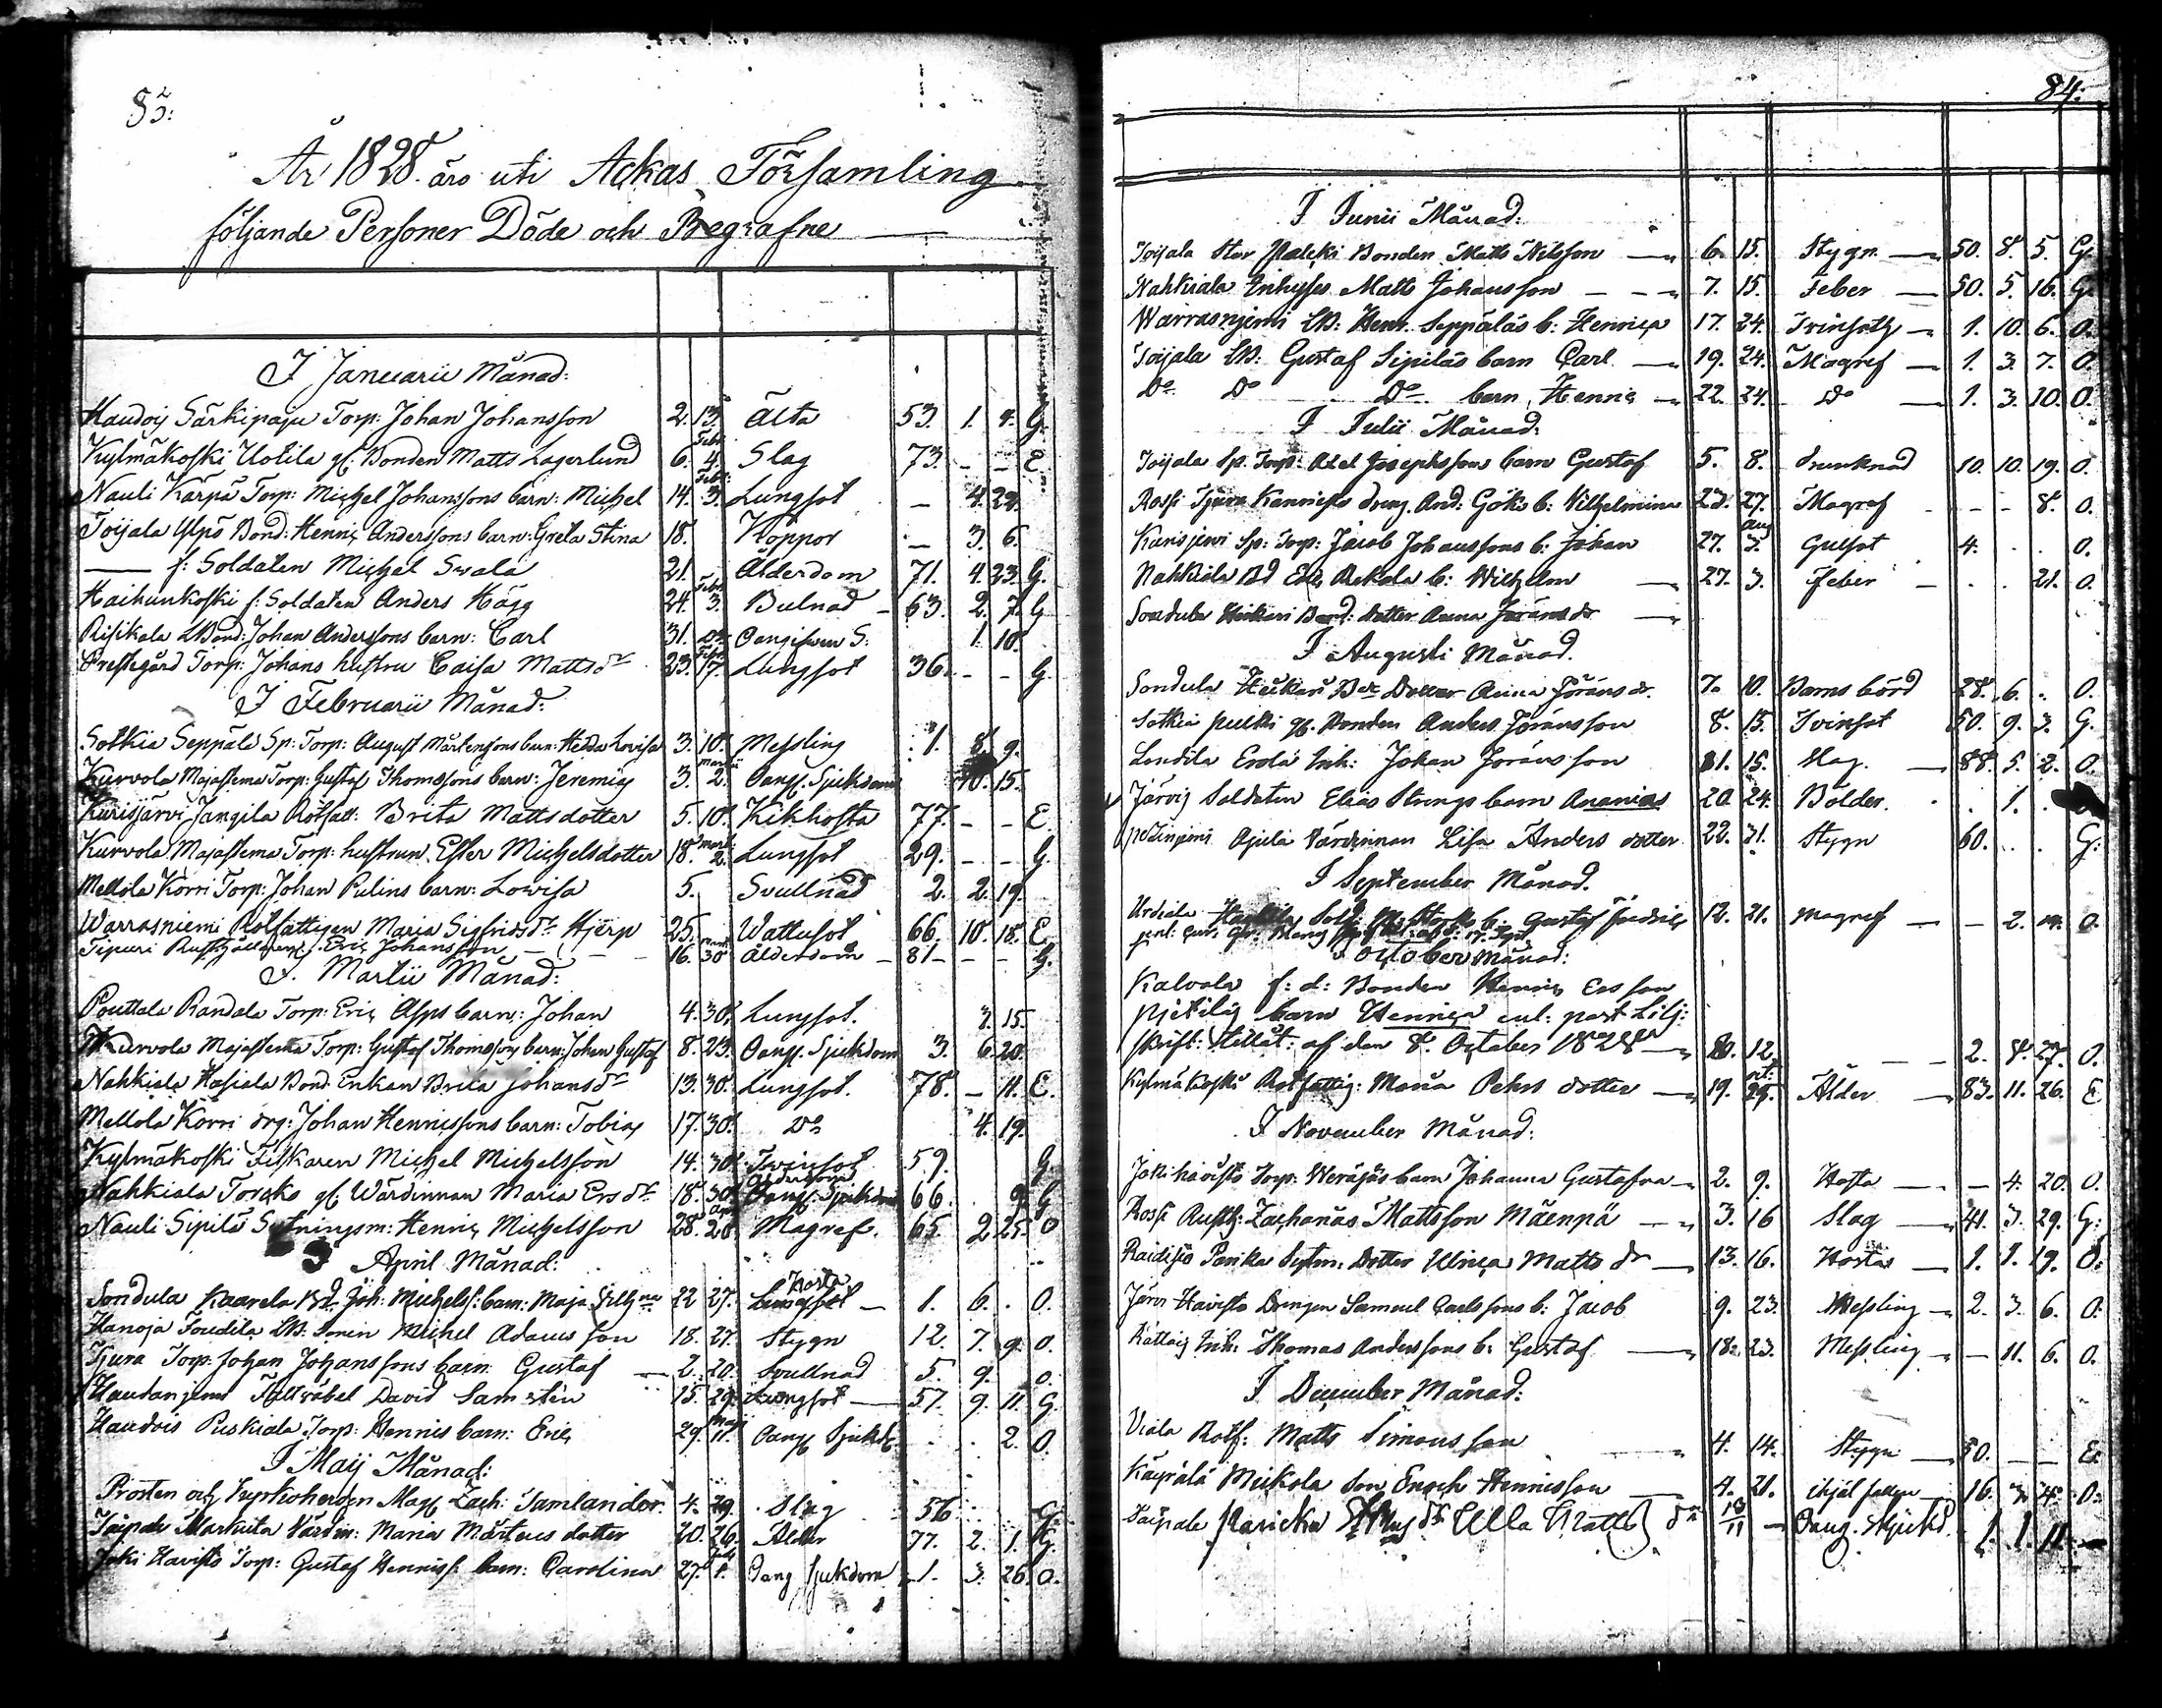 83:
År 1828. äro uti Ackas Församling
följande Personer Döde och Begrafne
I Januarii Månad:
Haudoij Särkipaju Torp: Johan Johansson 2. 13. Älta 53. 1. 4. G.
Kylmäkoski Uotila gl. Bonden Matts Lagerlund 6. Febr: 4. Slag 73. - - E.
Nauli Kärpä Torp: Michel Johanssons barn: Michel 14. Febr: 3. Lungsot - 4. 24.
Toijala Ylpö Bond: Henric Anderssons barn: Greta Stina 18. Koppor - 3. 6.
— f: Soldaten Michel Swala 21. Ålderdom 71. 4. 23. G.
Haihunkoski f: Soldaten Anders Hägg 24. Febr 3. Bulnad - 63. 2. 7. G.
Risikala LBond: Johan Anderssons barn: Carl 31. Do 1. 10.
Prestegård Torp: Johans hustru Caisa Mattsdr 23. Febr 17. Lungsot 36. - - G.
I Februarii Månad:
Sotkia Seppälä Sp: Torp: August Mårtensons barn: Hedda Lovisa 3. 10. Messling 1. 8. 9.
Kurvola Majastema Torp: Gustaf Thomssons barn: Jeremias 3. Martii 2. Oangf. Sjukdom 10. 15.
Kurisjärvi Jangila Rotfatt: Brita Mattsdotter 5. 10. Kikhosta 77. - - E.
Kurvola Majastema Torp: hustrun Ester Michelsdotter 18. Mart: 2. Lungsot 29. - - G.
Mellola Korri Torp: Johan Pulins barn: Lovisa 5. Svullnad 2. 2. 19.
Warrasniemi Rotfattigen Maria Sigfridsdr Hjerp 25. Wattusot 66. 10. 18. E.
Tipuri Eric Johansson 16. Mart 30 Ålderdom - 81 - - - G.
I. Martii Månad:
Pouttala Randala Torp: Eric Asps barn: Johan 4. 30. Lungsot. 3. 15.
Kurvola Majastema Torp: Gustaf Thomssons barn: Johan Gustaf 8. 23. Oangf. Sjukdom 3. 6. 20.
Nahkiala Hasiala Bond Enkan Brita Johansdr 13. 30. Lungsot. 78. - 11. E.
Mellola Korri drg: Johan Henricssons barn: Tobias 17. 30. Do 4. 19.
Kylmäkoski Fiskaren Michel Michelsson 14. 30. Tvinsot 59. G.
Nahkiala Torcko gl: Wärdinnan Maria Ersdr 18. 30. Ålderdom Oangf. Sjukdom 66. 9. G
Nauli Sipilä Sytningsm: Henric Michelsson 28. Apr 20. Magref. 65. 2 25. O
I April Månad:
Sondula Kaarela Bd. Joh: Michels: barn: Maja Wilhna 22 27. Hosta Lungsot — 1. 6. . O.
Hanoja Toudila LB. Sonen Michel Adamsson 18. 27. Stygn 12. 7. 9. O.
Tjura Torp: Johan Johanssons barn: Gustaf — 2. 20. Svullnad 5. 9. O.
David Samsten 15. 29. Lungsot — 57. 9. 11. G.
Haudois Puskiala Torp: Henrics barn: Eric 29. Maji 11. Oangf Sjukd: . . 2. O.
I Maij Månad:
Prosten och Kyrkoherden Mag. Zach: Samlander. 4. 29. Slag 56 . . G.
Taipale Markuta Värdin: Maria Mårtens dotter 20. 26. Ålder 77. 2. 1. G.
Joki Havisto Torp: Gustaf Henrics: barn: Carolina 27. 1. Oang Sjukdom - 1. 3. 26. O.
84.
I Junii Månad:
Toijala Stor Paleki Bonden Matts Nilsson — 6. 15. Stygn — 50. 8. 5. G.
Nahkiala Inhyses Matts Johansson — 7. 15. Feber — 50. 5. 16. G.
Warrasnjemi LB: Henr. Seppäläs b: Henrica 17. 24. Tvinsot — 1. 10. 6. O.
Toijala LB: Gustaf Sipiläs barn Carl — 19. 24. Magref — 1. 3. 7. O.
Do Do Do barn Henric — 22. 24. Do — 1. 3. 10. O.
I Julii Månad:
Toijala Sp. Torp: Axel Josephssons barn Gustaf 5. 8. drunknad 10. 10. 19. O.
Rossi Tjura Kanristo dreng. And: Göks b: Vilhelmina 23. 27. Magref - - - 8. O.
Karisjervi Sp: Torp: Jacob Johanssons b: Johan 27. Aug 3. Gulsot 4. . . O.
Nahkiala Bd Eric Rekola b: Wilhelm — 27. 3. Feber - . . 21. O.
Sondula Heikari Bond: dotter Anna Jöransdr —
I Augusti Månad.
Sondula Heikari Bde Dotter Anna Jöransdr. 7. 10. Barns börd 28. 6. . O.
Sotkia pulki gl. Bonden Anders Jöransson 8. 15. Tvinsot 50. 9. 3. G.
Londila Erola Inh: Johan Jöransson 31. 15. Slag. — 88. 5. 2. O.
Järvis Soldaten Elias Strengs barn Ananias 20. 24. Bölder. . . 1. .
Ajula Värdinnan Lisa Anders dotter 22. 31. Stygn 60. . . G.
I September Månad.
Urdiala Sold: M: Storks b: Gustaf Fredric 12. 21. Magref — - 2. 14. O.
I October Månad:
Kalvola f: d: Bonden Henric Ersson
Pjetilä barn Henrica enl: past Lilj:
skrift: tillåt: af den 8. October 1828 — 10. 12. — — 2. 8. 27. O.
Kylmäkoski Rotfattig: Maria Pehrs dotter — 19. oct: 25. Ålder — 83. 11. 26. E
I November Månad:
Joki havisto Torp: Weräjäs barn Johanna Gustafva — 2. 9. Hosta — - 4. 20. O.
Rossi Rusth: Zacharias Mattsson Mäenpä — 3. 16 Slag — 41. 3. 29. G.
Raidisto Panka Sytn: Dotter Ulrica Matts dr — 13. 16. Hosta — 1. 1. 19. O.
Järvi Havisto Drengen Samuel Carlssons b: Jacob 9. 23. Messling — 2. 3. 6. O.
Rattois Inh: Thomas Anderssons b: Gustaf — 18. 23. Messling — - 11. 6. O.
I December Månad:
Viala Rotf: Matts Simonsson — 4. 14. Stygn — 50. — — E.
Käyrälä Mickola Son Enoch Henricsson — 4. 21. ihjäl fallen 16. 3. 4. O.
Taipale Ulla Matts 13/11 — Oang. Sjukd. 1. 1. 11. —